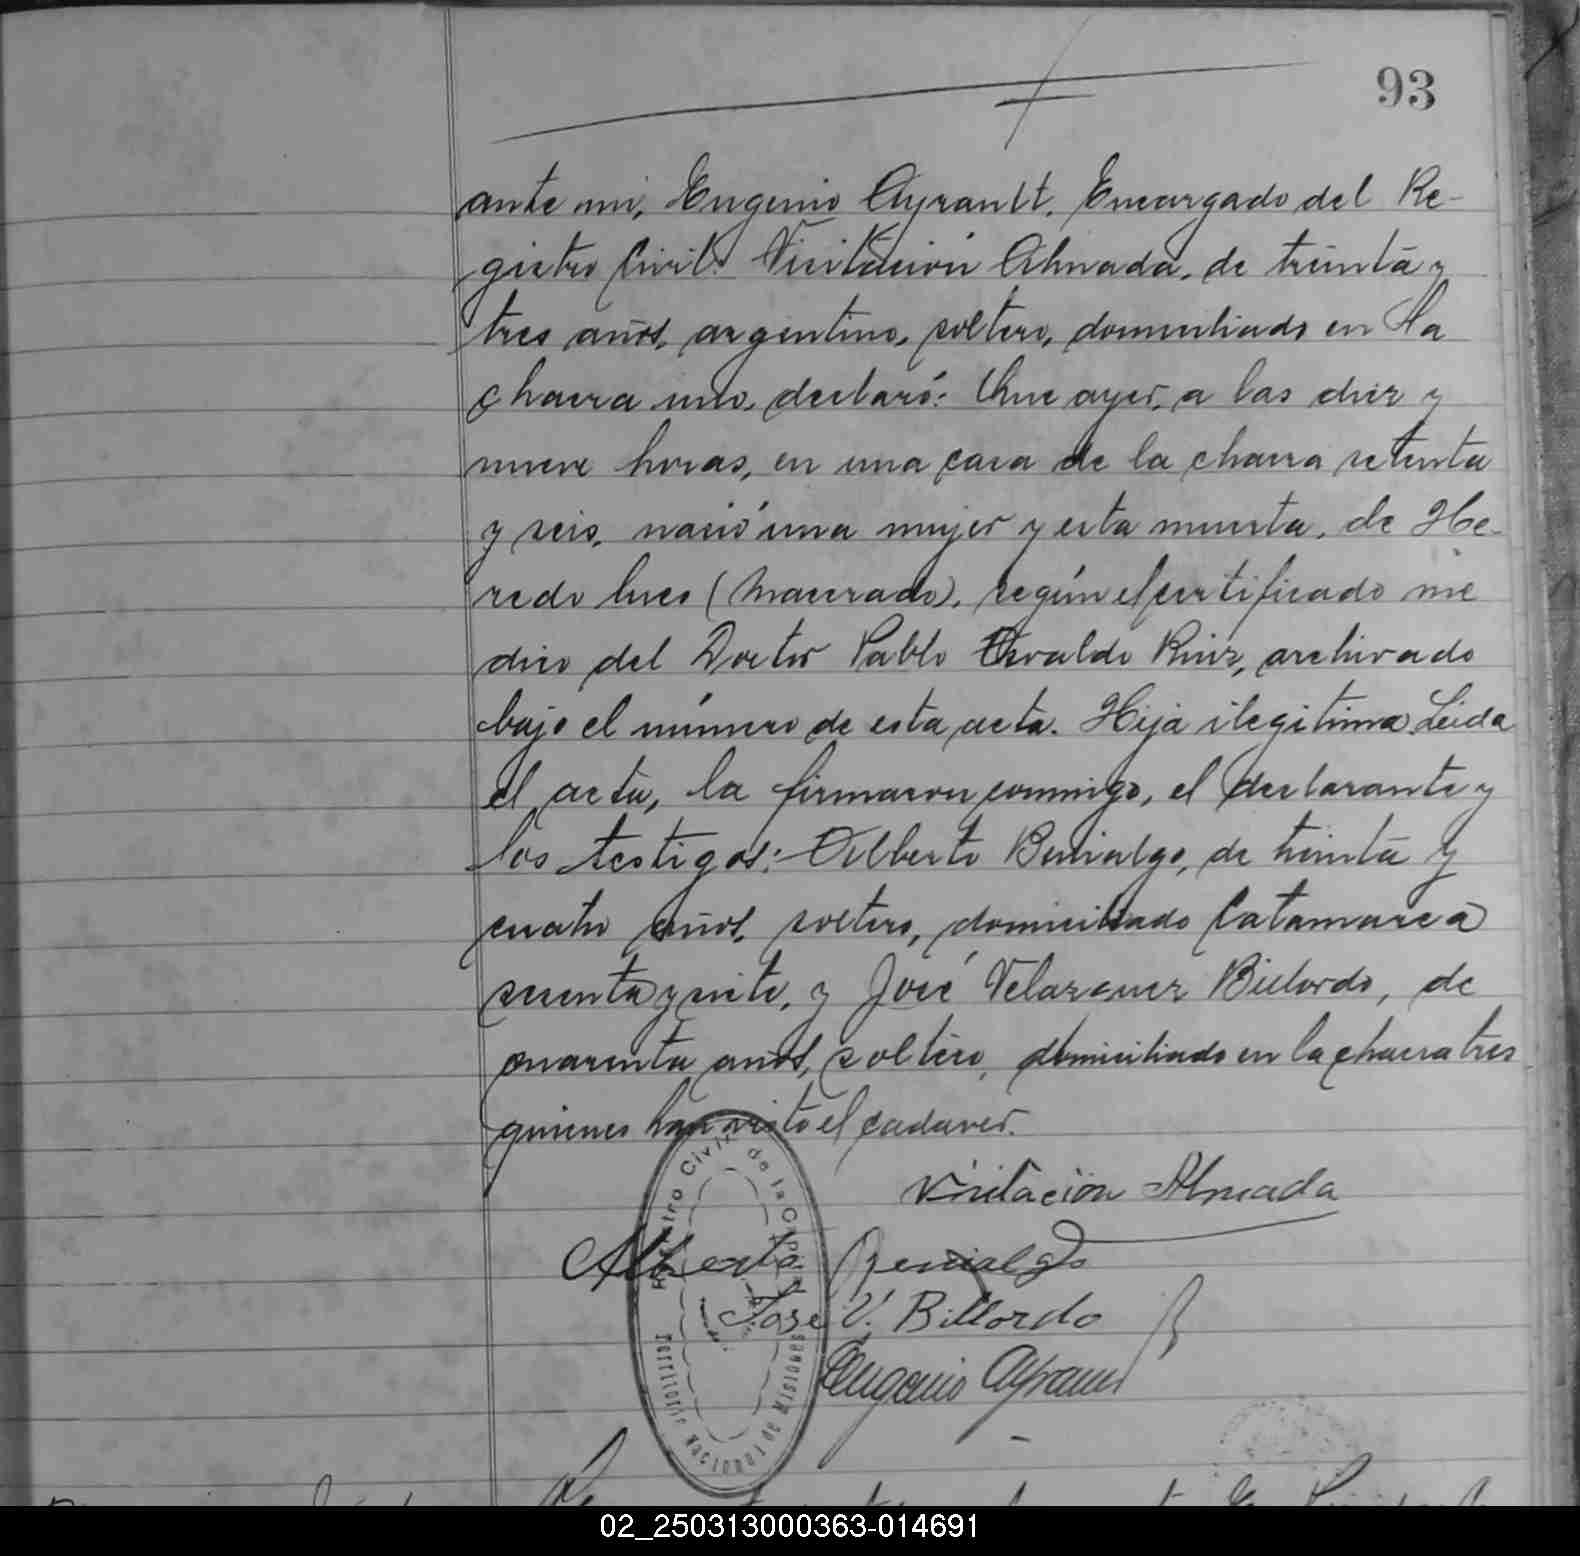 93
ante mi, Eugenio Ayrault, Encargado del Re-
gistro Civil: Visitación Almada, de treinta y
tres años, argentino, soltero, domiciliado en la
chacra uno, declaró: Que ayer, a las diez y
nueve horas, en una casa de la chacra setenta
y seis, nació una mujer y esta muerta, de He-
redo lues (Macerado), según el certificado me
dico del Doctor Pablo Osvaldo Ruiz, archivado
bajo el número de esta acta. Hija ilegitima. Leida
el acta, la firmaron conmigo, el declarante y
los testigos: Alberto Benialgo, de treinta y
cuatro años, soltero, domiciliado Catamarca
sesenta y siete, y José Velazquez Billordo, de
cuarenta años, soltero, domiciliado en la chacra tres
quienes han visto el cadaver.
Visitación Almada
Alberto Benialgo
Jose V. Billordo
Eugenio Ayrault
Registro Civil de la Capital
Territorio Nacional de Misiones
02_250313000363-014691